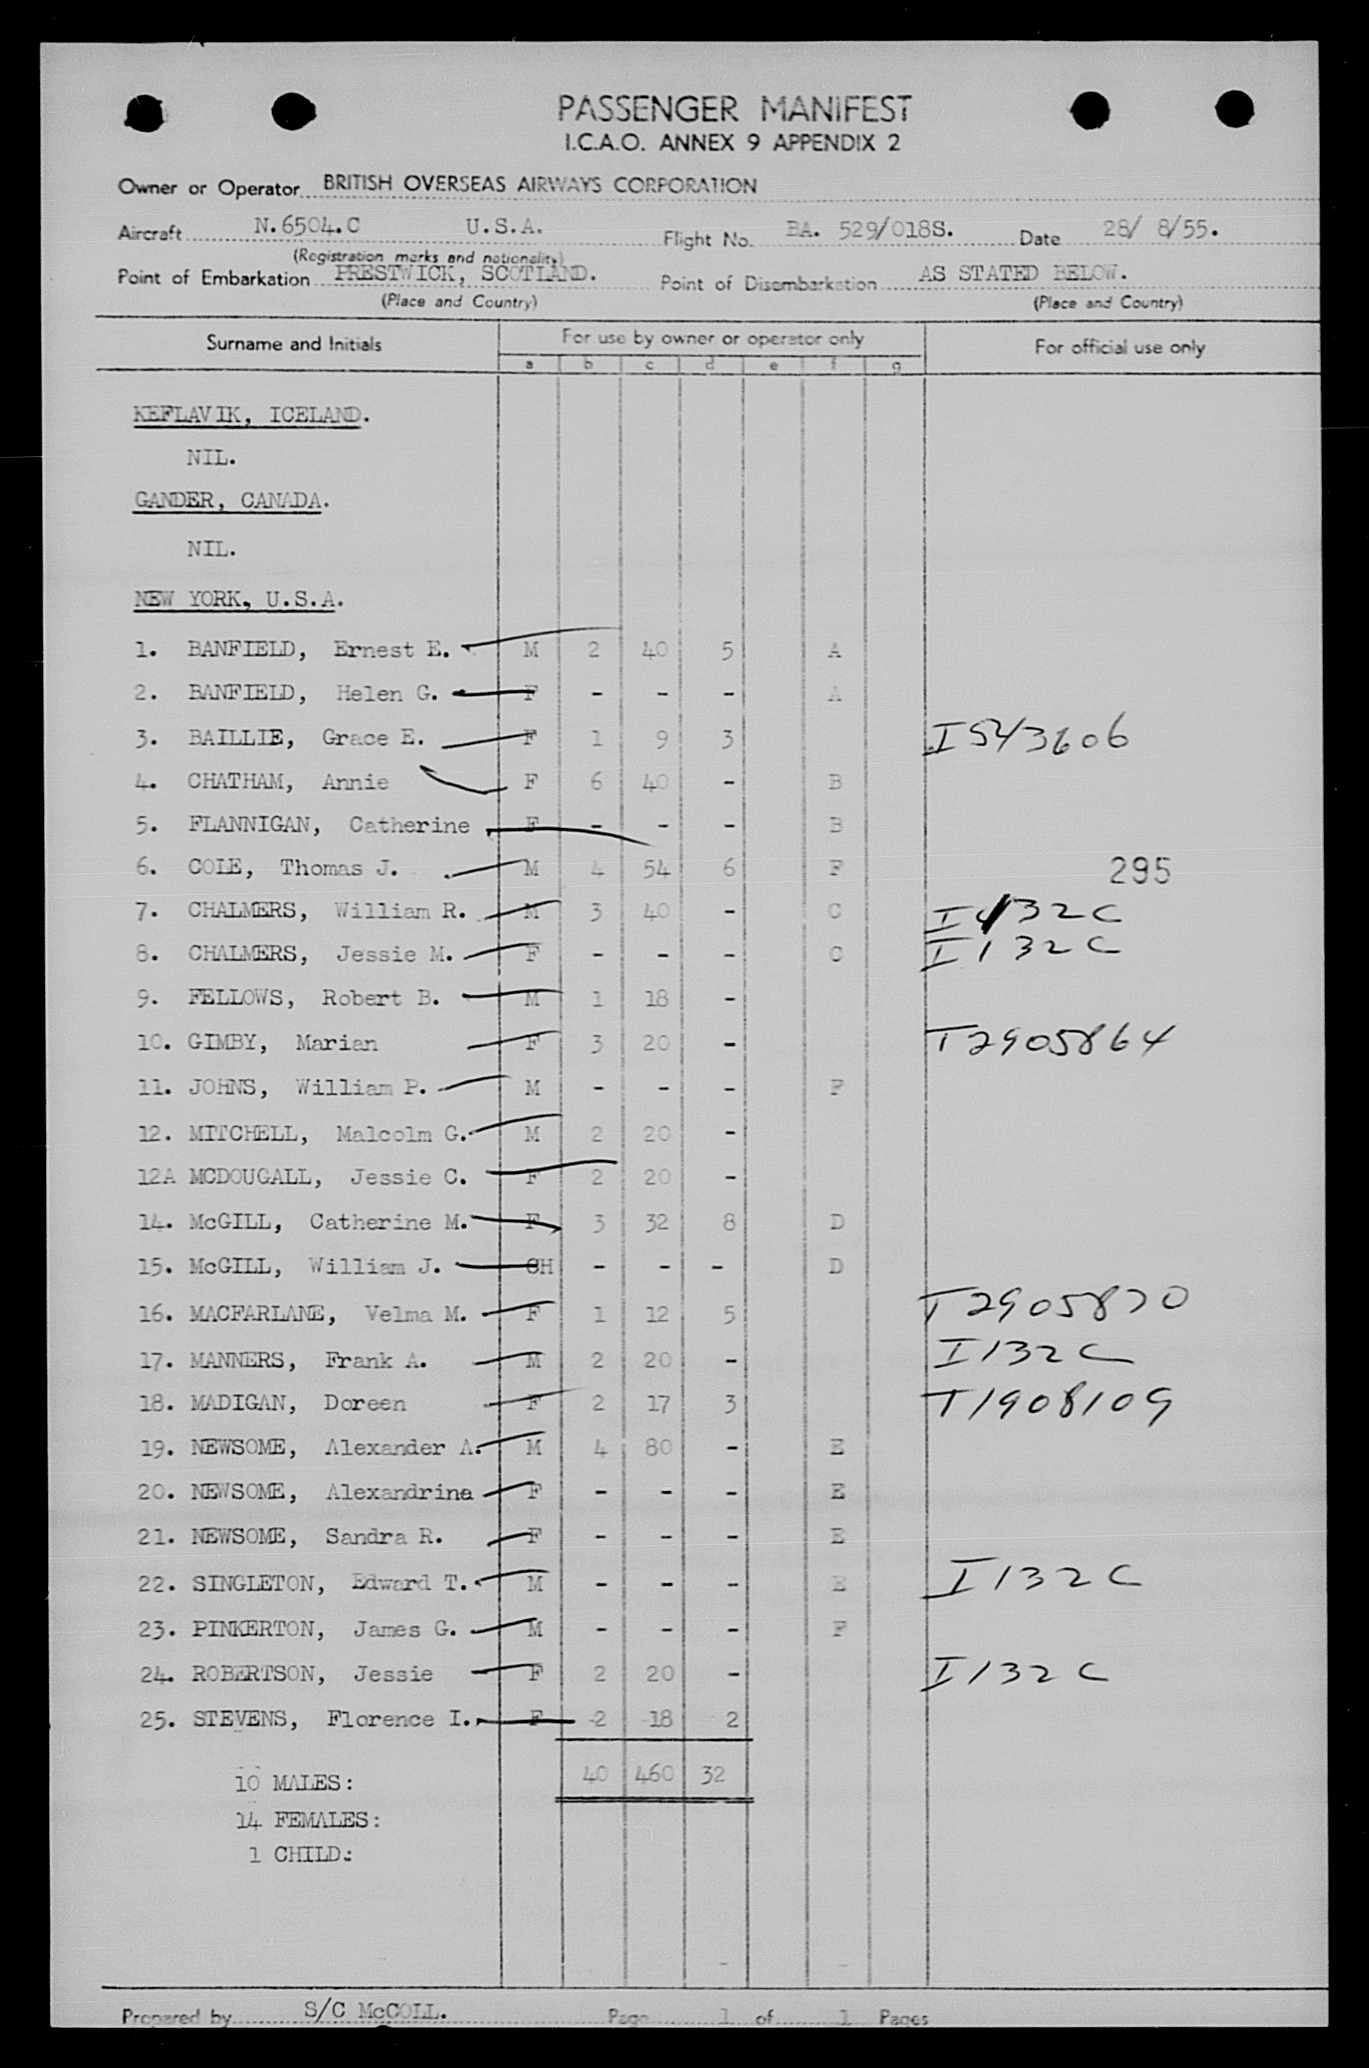 PASSENGER MANIFEST
I.C.A.O. ANNEX 9 APPENDIX 2
Owner or Operator BRITISH OVERSEAS AIRWAYS CORPORATION
Aircraft N.6504.C U.S.A. Flight No. BA. 529/018S. Date 28/ 8/55.
(Registration marks and nationality)
Point of Embarkation PRESTWICK, SCOTLAND. Point of Disembarkation AS STATED BELOW.
(Place and Country) (Place and Country)
Surname and Initials For use by owner or operator only For official use only
a b c d e f g
KEFLAVIK, ICELAND.
NIL.
GANDER, CANADA.
NIL.
NEW YORK, U.S.A.
1. BANFIELD, Ernest E. M 2 40 5 A
2. BANFIELD, Helen G. F - - - A
3. BAILLIE, Grace E. F 1 9 3 I543606
4. CHATHAM, Annie F 6 40 - B
5. FLANNIGAN, Catherine F - - - B
6. COLE, Thomas J. M 4 54 6 F 295
7. CHALMERS, William R. M 3 40 - C I 132C
8. CHALMERS, Jessie M. F - - - C I 132C
9. FELLOWS, Robert B. M 1 18 -
10. GIMBY, Marian F 3 20 - T2905864
11. JOHNS, William P. M - - - F
12. MITCHELL, Malcolm G. M 2 20 -
12A MCDOUGALL, Jessie C. F 2 20 -
14. McGILL, Catherine M. F 3 32 8 D
15. McGILL, William J. CH - - - D
16. MACFARLANE, Velma M. F 1 12 5 T2905870
17. MANNERS, Frank A. M 2 20 - I132C
18. MADIGAN, Doreen F 2 17 3 T1908109
19. NEWSOME, Alexander A. M 4 80 - E
20. NEWSOME, Alexandrina F - - - E
21. NEWSOME, Sandra R. F - - - E
22. SINGLETON, Edward T. M - - - E I132C
23. PINKERTON, James G. M - - - F
24. ROBERTSON, Jessie F 2 20 - I132C
25. STEVENS, Florence I. F 2 18 2
40 460 32
10 MALES:
14 FEMALES:
1 CHILD:
Prepared by S/C McCOLL. Page 1 of 1 Pages